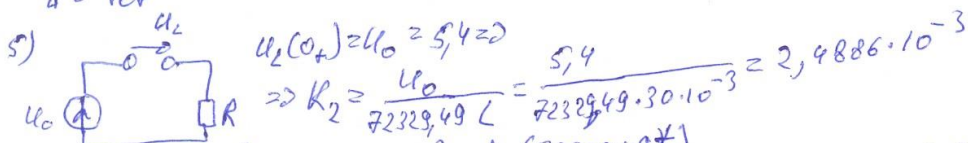 5) u_L u_L(0_+)=u_0 = 5,4 =>
u_0 R => K_2 = \frac{u_0}{72329,49 L} = \frac{5,4}{72329,49·30·10^{-3}} = 2,4886·10^{-3}